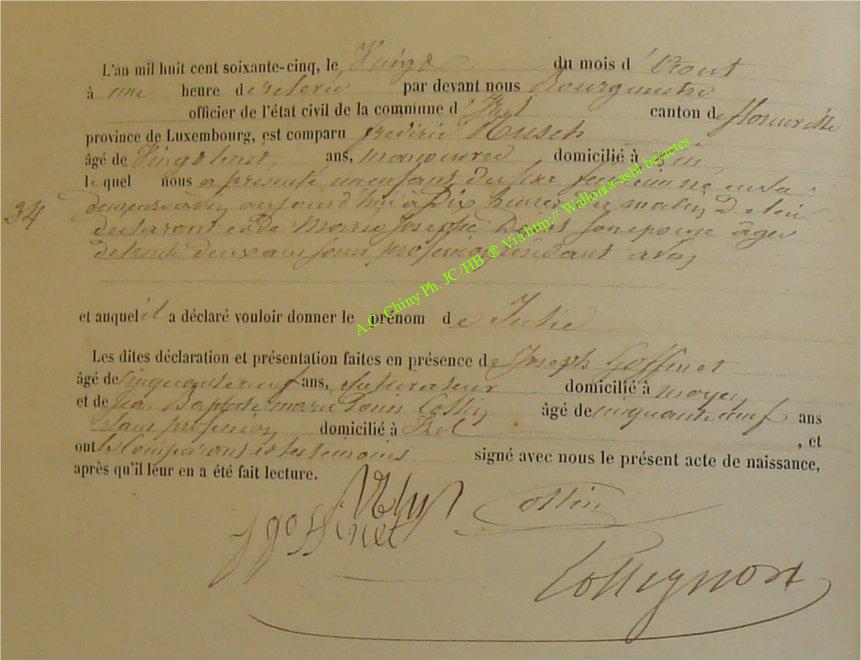 L'an mil huit cent soixante-cinq, le Vingt du mois d'Aout
à une heure de relevée par devant nous Bourgmestre
officier de l'état civil de la commune d'Izel canton de florenville
province de Luxembourg, est comparu frédéric Husch
âgé de Vingt huit ans, manoeuvre domicilié à
lequel nous a présenté un enfant du sexe feminin né en sa
demeure aujourd'hui a Dix heures du matin De lui
declarant et de Marie Josephe son epouse âgée
34
de trente deux ans sans profession résidant avec
et auquel il a déclaré vouloir donner le prénom de Julie
Les dites déclaration et présentation faites en présence de Joseph Goffinet
âgé de cinquante neuf ans, cultivateur domicilié à moyen
et de Jean Baptiste marie Collin âgé de cinquante neuf ans
sans profession domicilié à Izel , et
ont le Comparant et les temoins signé avec nous le présent acte de naissance,
après qu'il leur en a été fait lecture.
Collin
J goffinet
Collignon
A.C. Chiny Ph. JC/HB ® Via http:// Wallonia-asbl.be/actes